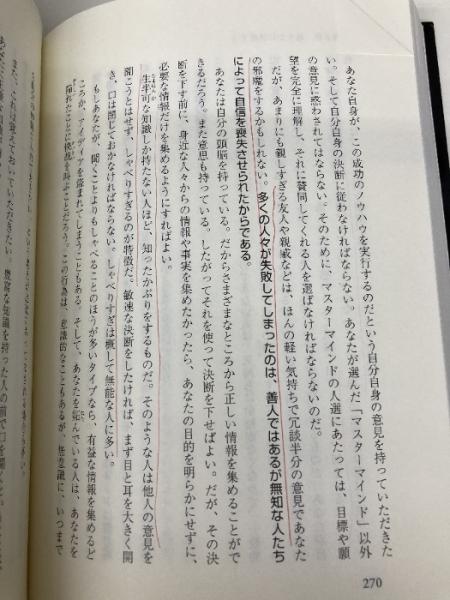 あなた自身が、この成功のノウハウを実行するのだという自分自身の意見を持っていただきた
い。そして自分自身の決断に従わなければならない。あなたが選んだ「マスターマインド」以外
の意見に惑わされてはならない。そのために、マスターマインドの人選にあたっては、目標や願
望を完全に理解し、それに賛同してくれる人を選ばなければならないのだ。
だが、あまりにも親しすぎる友人や親戚などは、ほんの軽い気持ちで冗談半分の意見であなた
の邪魔をするかもしれない。多くの人々が失敗してしまったのは、善人ではあるが無知な人たち
によって自信を喪失させられたからである。
あなたは自分の頭脳を持っている。だからさまざまなところから正しい情報を集めることがで
きるだろう。また意思も持っている。したがってそれを使って決断を下せばよい。だが、その決
断を下す前に、身近な人々からの情報や事実を集めたかったら、あなたの目的を明らかにせずに、
必要な情報だけを集めるようにすればよい。
生半可な知識しか持たない人ほど、知ったかぶりをするものだ。そのような人は他人の意見を
聞こうとはせず、しゃべりすぎるのが特徴だ。敏速な決断をしたければ、まず目と耳を大きく開
き、口は閉じておかなければならない。しゃべりすぎは概して無能な人に多い。
もしあなたが、聞くことよりもしゃべることのほうが多いタイプなら、有益な情報を集めるど
ころか、アイディアを盗まれてしまうこともある。そして、あなたを妬んでいる人は、あなたを
この行為は、意識的なこともあるが、無意識に、いつまで
270